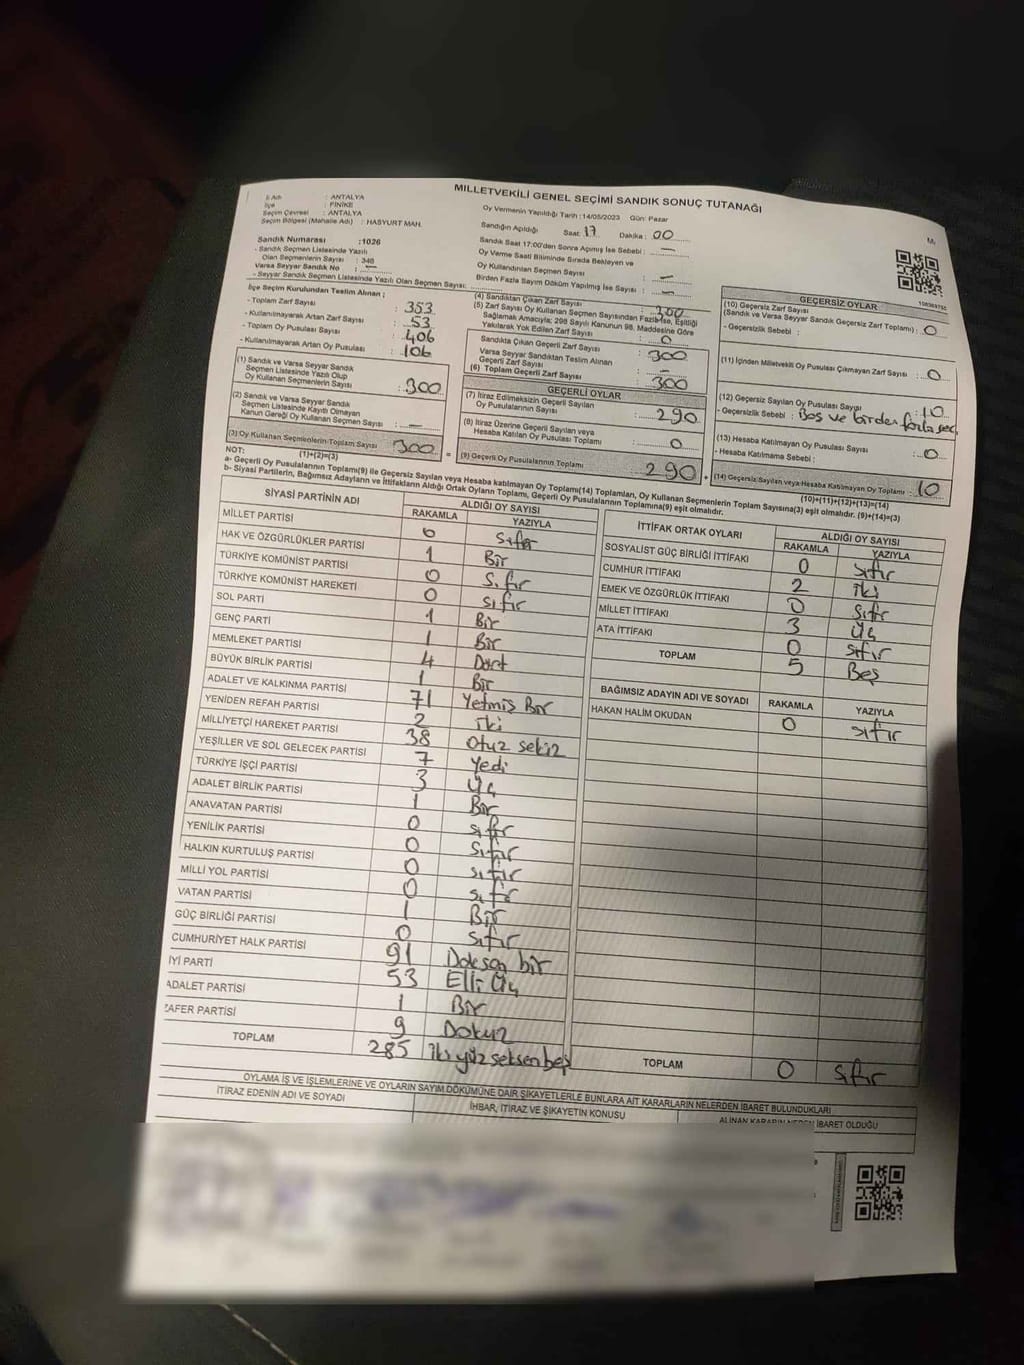 MİLLETVEKİLİ GENEL SEÇİMİ SANDIK SONUÇ TUTANAĞI
İl Adı : ANTALYA
İlçe : FİNİKE
Seçim Çevresi : ANTALYA
Seçim Bölgesi (Mahalle Adı) : HASYURT MAH.
Sandık Numarası :1026
- Sandık Seçmen Listesinde Yazılı
Olan Seçmenlerin Sayısı : 346
Varsa Seyyar Sandık No : —
- Seyyar Sandık Seçmen Listesinde Yazılı Olan Seçmen Sayısı:
Oy Vermenin Yapıldığı Tarih :14/05/2023 Gün: Pazar
Sandığın Açıldığı Saat: 17 Dakika : 00
Sandık Saat 17:00'den Sonra Açılmış İse Sebebi : —
Oy Verme Saati Bitiminde Sırada Bekleyen ve
Oy Kullandırılan Seçmen Sayısı : —
Birden Fazla Sayım Döküm Yapılmış İse Sayısı : —
İlçe Seçim Kurulundan Teslim Alınan ;
- Toplam Zarf Sayısı : 353
- Kullanılmayarak Artan Zarf Sayısı : 53
- Toplam Oy Pusulası Sayısı : 406
- Kullanılmayarak Artan Oy Pusulası : 106
(1) Sandık ve Varsa Seyyar Sandık
Seçmen Listesinde Yazılı Olup
Oy Kullanan Seçmenlerin Sayısı : 300
(2) Sandık ve Varsa Seyyar Sandık
Seçmen Listesinde Kayıtlı Olmayan
Kanun Gereği Oy Kullanan Seçmen Sayısı : —
(3) Oy Kullanan Seçmenlerin Toplam Sayısı : 300
(1)+(2)=(3)
(4) Sandıktan Çıkan Zarf Sayısı : 300
(5) Zarf Sayısı Oy Kullanan Seçmen Sayısından Fazla İse, Eşitliği
Sağlamak Amacıyla; 298 Sayılı Kanunun 98. Maddesine Göre
Yakılarak Yok Edilen Zarf Sayısı : 0
Sandıkta Çıkan Geçerli Zarf Sayısı : 300
Varsa Seyyar Sandıktan Teslim Alınan
Geçerli Zarf Sayısı : —
(6) Toplam Geçerli Zarf Sayısı : 300
GEÇERLİ OYLAR
(7) İtiraz Edilmeksizin Geçerli Sayılan
Oy Pusulalarının Sayısı : 290
(8) İtiraz Üzerine Geçerli Sayılan veya
Hesaba Katılan Oy Pusulası Toplamı : 0
(9) Geçerli Oy Pusulalarının Toplamı : 290
GEÇERSİZ OYLAR
(10) Geçersiz Zarf Sayısı
(Sandık ve Varsa Seyyar Sandık Geçersiz Zarf Toplamı) : 0
- Geçersizlik Sebebi :
(11) İçinden Milletvekili Oy Pusulası Çıkmayan Zarf Sayısı : 0
(12) Geçersiz Sayılan Oy Pusulası Sayısı : 10
- Geçersizlik Sebebi : Boş ve birden fazla seç.
(13) Hesaba Katılmayan Oy Pusulası Sayısı : 0
- Hesaba Katılmama Sebebi :
(14) Geçersiz Sayılan veya Hesaba Katılmayan Oy Toplamı : 10
(10)+(11)+(12)+(13)=(14)
NOT:
a- Geçerli Oy Pusulalarının Toplamı(9) ile Geçersiz Sayılan veya Hesaba katılmayan Oy Toplamı(14) Toplamları, Oy Kullanan Seçmenlerin Toplam Sayısına(3) eşit olmalıdır. (9)+(14)=(3)
b- Siyasi Partilerin, Bağımsız Adayların ve İttifakların Aldığı Ortak Oyların Toplamı, Geçerli Oy Pusulalarının Toplamına(9) eşit olmalıdır.
SİYASİ PARTİNİN ADI ALDIĞI OY SAYISI
RAKAMLA YAZIYLA
MİLLET PARTİSİ 0 Sıfır
HAK VE ÖZGÜRLÜKLER PARTİSİ 1 Bir
TÜRKİYE KOMÜNİST PARTİSİ 0 Sıfır
TÜRKİYE KOMÜNİST HAREKETİ 0 sıfır
SOL PARTİ 1 Bir
GENÇ PARTİ 1 Bir
MEMLEKET PARTİSİ 4 Dört
BÜYÜK BİRLİK PARTİSİ 1 Bir
ADALET VE KALKINMA PARTİSİ 71 Yetmiş Bir
YENİDEN REFAH PARTİSİ 2 iki
MİLLİYETÇİ HAREKET PARTİSİ 38 otuz sekiz
YEŞİLLER VE SOL GELECEK PARTİSİ 7 Yedi
TÜRKİYE İŞÇİ PARTİSİ 3 Üç
ADALET BİRLİK PARTİSİ 1 Bir
ANAVATAN PARTİSİ 0 sıfır
YENİLİK PARTİSİ 0 Sıfır
HALKIN KURTULUŞ PARTİSİ 0 sıfır
MİLLİ YOL PARTİSİ 0 sıfır
VATAN PARTİSİ 1 Bir
GÜÇ BİRLİĞİ PARTİSİ 0 sıfır
CUMHURİYET HALK PARTİSİ 91 Doksan bir
İYİ PARTİ 53 Elli Üç
ADALET PARTİSİ 1 Bir
ZAFER PARTİSİ 9 Dokuz
TOPLAM 285 iki yüz seksen beş
İTTİFAK ORTAK OYLARI ALDIĞI OY SAYISI
RAKAMLA YAZIYLA
SOSYALİST GÜÇ BİRLİĞİ İTTİFAKI 0 sıfır
CUMHUR İTTİFAKI 2 iki
EMEK VE ÖZGÜRLÜK İTTİFAKI 0 sıfır
MİLLET İTTİFAKI 3 Üç
ATA İTTİFAKI 0 sıfır
TOPLAM 5 Beş
BAĞIMSIZ ADAYIN ADI VE SOYADI RAKAMLA YAZIYLA
HAKAN HALİM OKUDAN 0 sıfır
TOPLAM 0 sıfır
OYLAMA İŞ VE İŞLEMLERİNE VE OYLARIN SAYIM DÖKÜMÜNE DAİR ŞİKAYETLERLE BUNLARA AİT KARARLARIN NELERDEN İBARET BULUNDUKLARI
İTİRAZ EDENİN ADI VE SOYADI
İHBAR, İTİRAZ VE ŞİKAYETİN KONUSU
ALINAN KARARIN NEDEN İBARET OLDUĞU